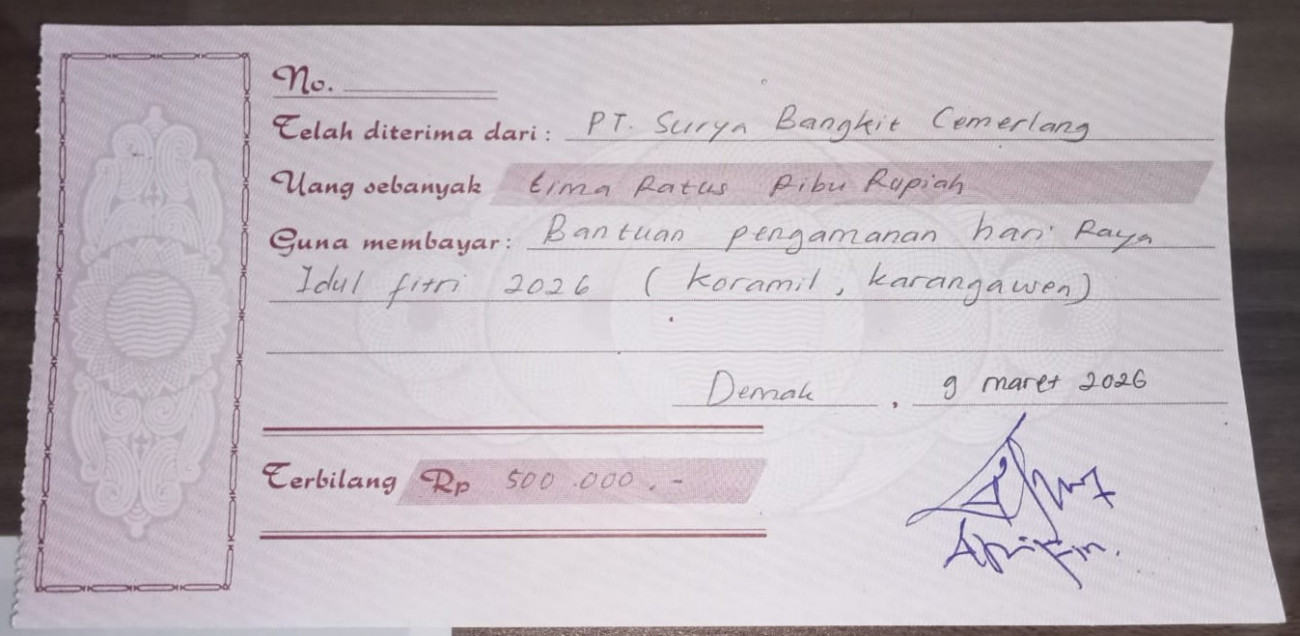 No.
Telah diterima dari : PT. Surya Bangkit Cemerlang
Uang sebanyak Lima Ratus Ribu Rupiah
Guna membayar : Bantuan pengamanan hari Raya
Idul fitri 2026 ( Koramil , karangawen)
Demak , 9 maret 2026
Terbilang Rp 500.000.-